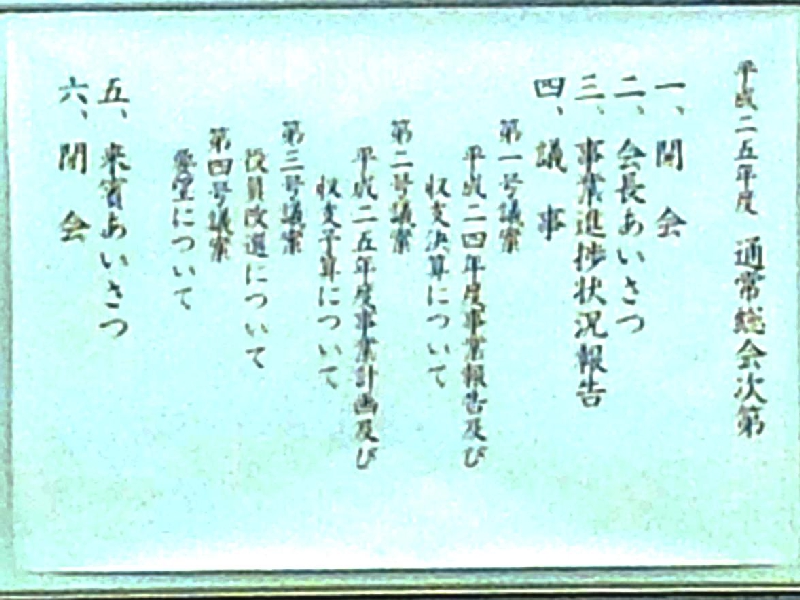 平成二五年度 通常総会次第
一、開会
二、会長あいさつ
三、事業進捗状況報告
四、議事
第一号議案
平成二四年度事業報告及び
収支決算について
第二号議案
平成二五年度事業計画及び
収支予算について
第三号議案
役員改選について
第四号議案
要望について
五、来賓あいさつ
六、閉会